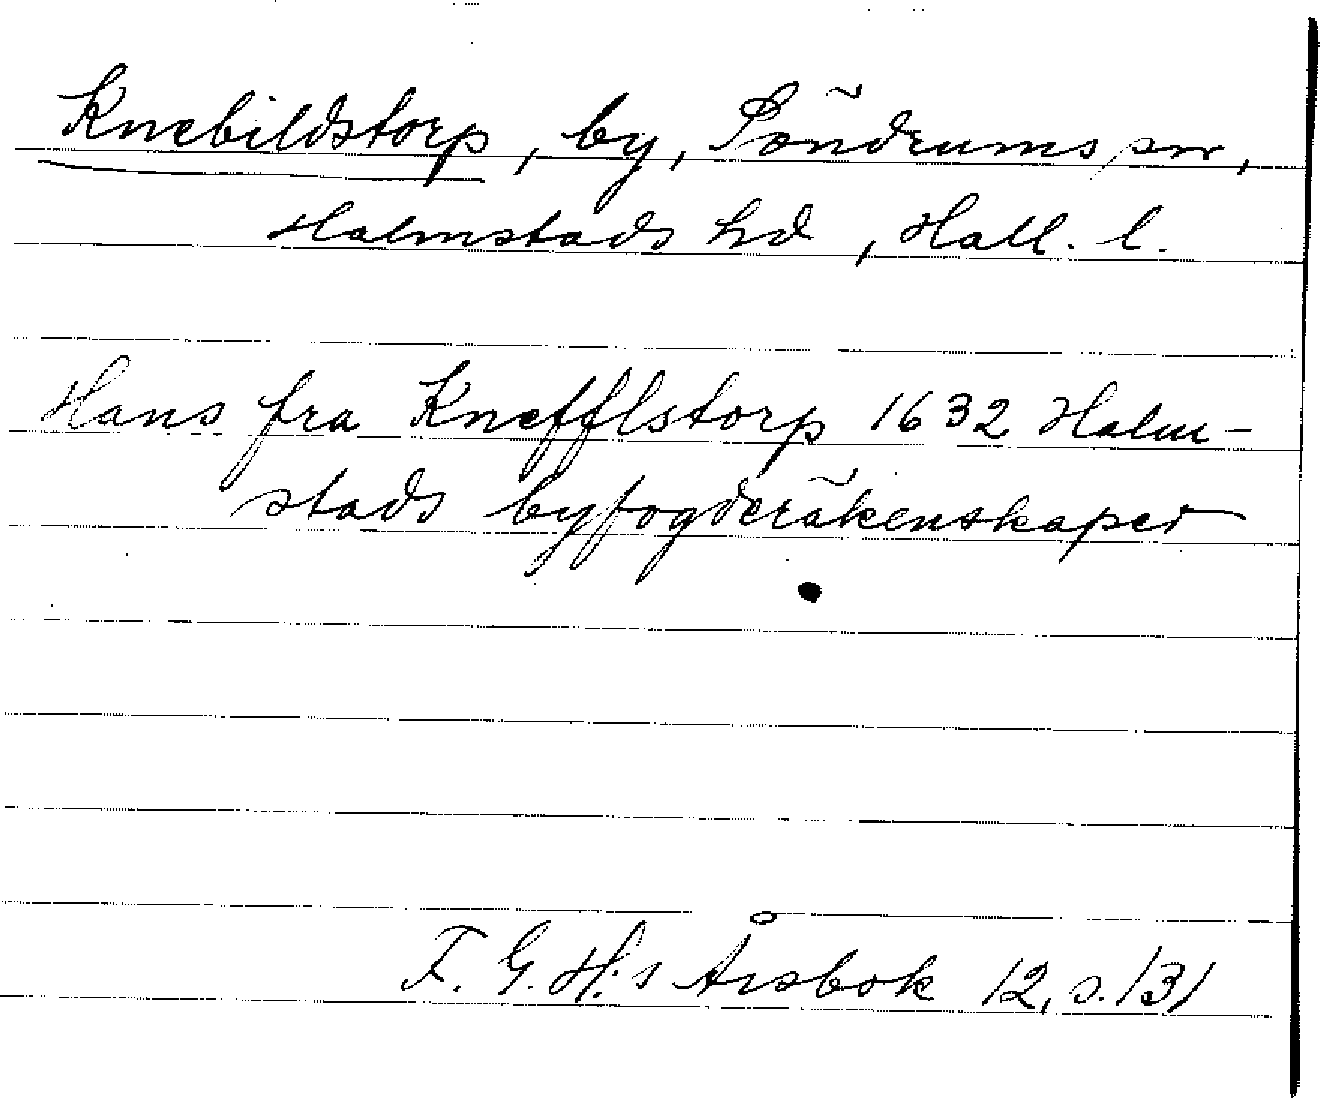 Knebildstorp, by, Söndrums sn,
Halmstads hd, Hall. l.
Hans fra Knefflstorp 1632 Halm-
stads byfogderäkenskaper
F. G. H:s Årsbok 12, s. 131